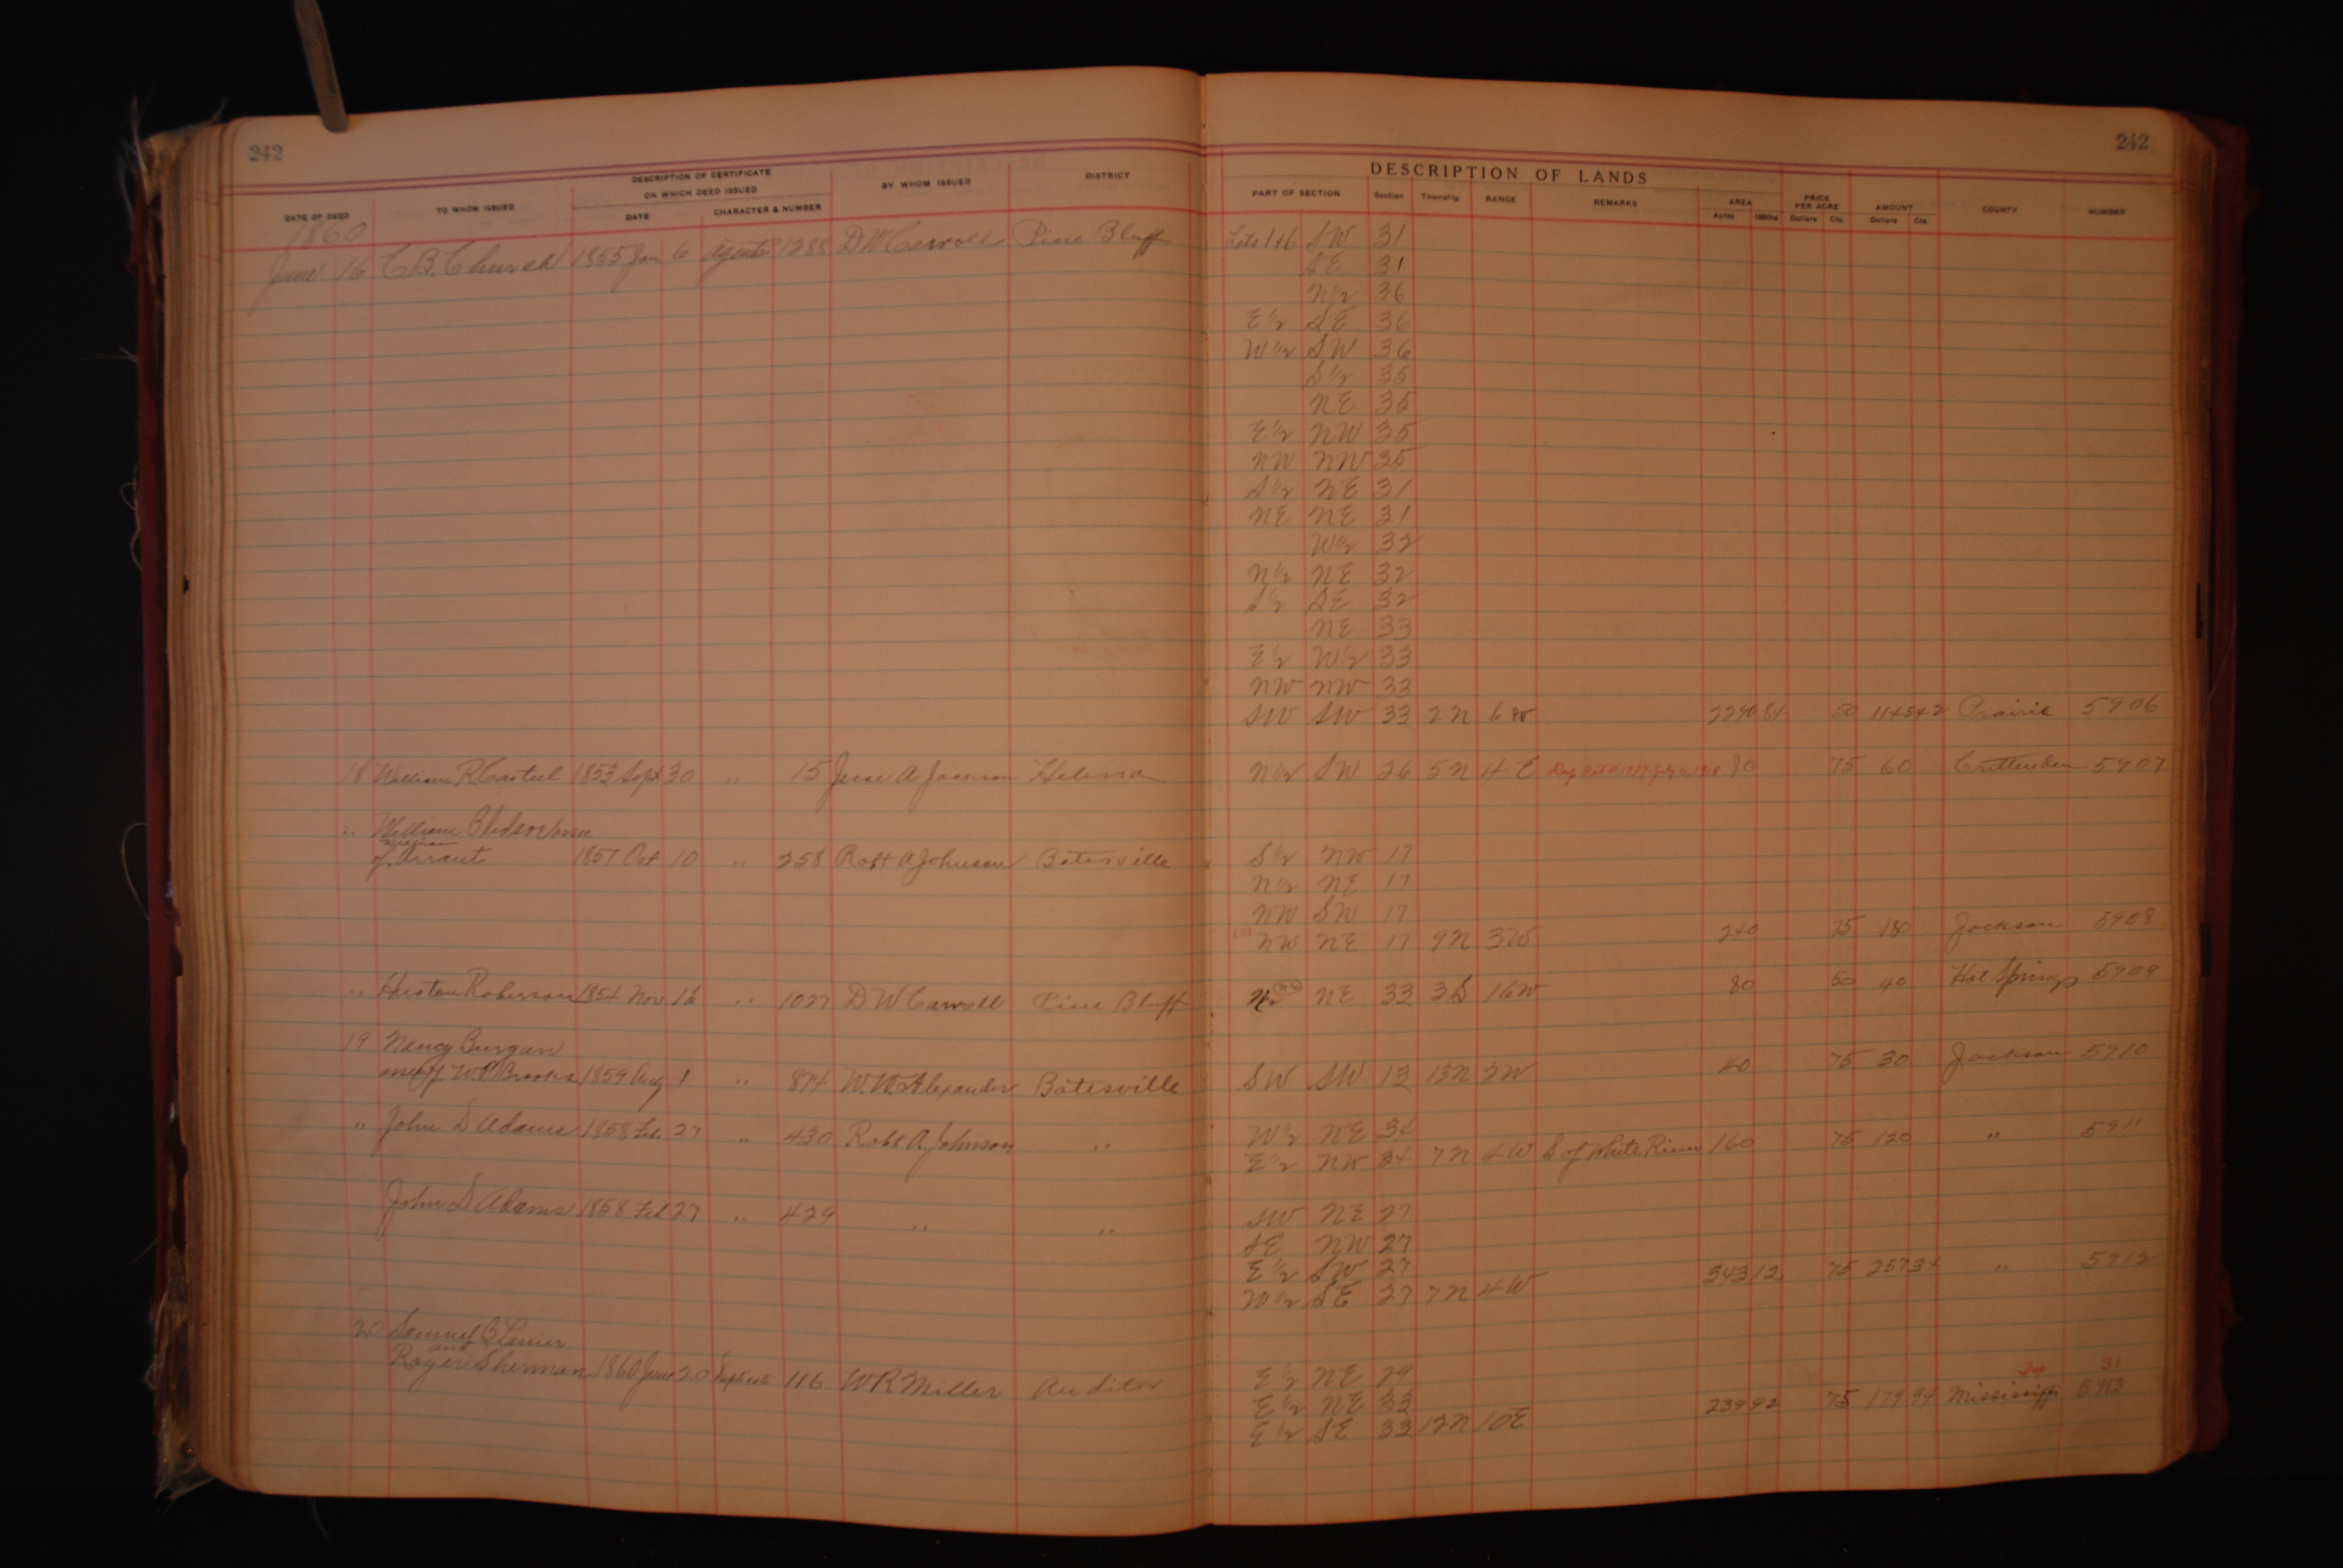 242
242
DESCRIPTION OF CERTIFICATE
ON WHICH DEED ISSUED
DATE OF DEED TO WHOM ISSUED DATE CHARACTER & NUMBER BY WHOM ISSUED DISTRICT
DESCRIPTION OF LANDS
PART OF SECTION Section Township RANGE REMARKS AREA Acres 100ths PRICE PER ACRE Dollars Cts. AMOUNT Dollars Cts. COUNTY NUMBER
1860
June 16 C.B. Church 1855 Jan 6 Agents 1288 D W Carroll Pine Bluff Lots 1+6 SW 31
SE 31
N 1/2 36
E 1/2 SE 36
W 1/2 SW 36
S 1/2 35
NE 35
E 1/2 NW 35
NW NW 35
S 1/2 NE 31
NE NE 31
W 1/2 32
N 1/2 NE 32
S 1/2 SE 32
NE 33
E 1/2 W 1/2 33
NW NW 33
SW SW 33 2 N 6 W 2290 84 50 1145 42 Prairie 5906
18 William R. Casteel 1853 Sept 30 " 15 Jesse A Jackson Helena N 1/2 SW 26 5 N 4 E 80 75 60 Crittenden 5907
" William Bledsoe
of Arraut 1857 Oct 10 " 258 Robt A Johnson Batesville S 1/2 NW 17
N 1/2 NE 17
NW SW 17
NW NE 17 9N 3W 240 75 180 Jackson 5908
" Roberson 1854 Nov. 16 " 1027 D W Carroll Pine Bluff NE 33 3 S 16W 80 50 40 Hot Springs 5909
19 Nancy Burgan
W.P. Brooks 1859 Aug 1 " 874 W.W. Alexander Batesville SW SW 13 13N 2W 40 75 30 Jackson 5910
" John D Adams 1858 Feb. 27 " 430 Robt A. Johnson " W 1/2 NE 34
E 1/2 NW 34 7 N 4 W S of White River 160 75 120 " 5911
John D Adams 1858 Feb 27 " 429 " " SW NE 27
SE NW 27
E 1/2 SW 27
W 1/2 SE 27 7 N 4 W 343 12 75 257 34 " 5912
20 Samuel B Lanier
and
Roger Sherman 1860 June 20 Duplicate 116 W R Miller Auditor E 1/2 NE 29
E 1/2 NE 33
E 1/2 SE 33 12N 10E 239 92 75 179 94 Mississippi 5913
31